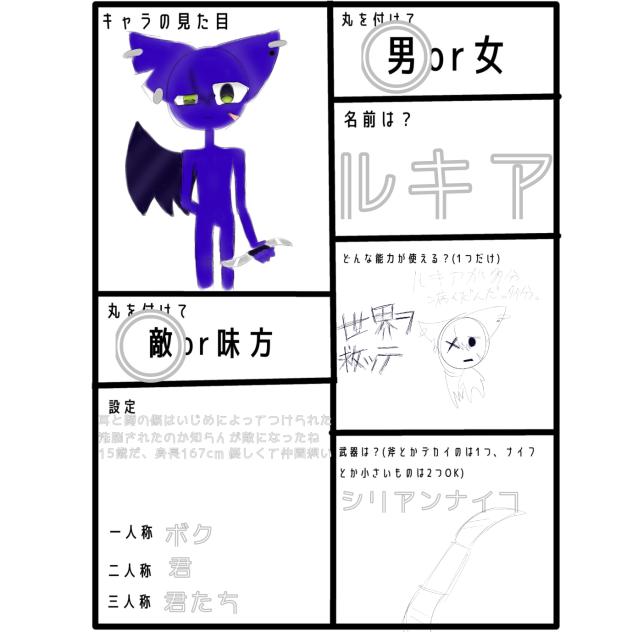 キャラの見た目
丸を付けて
男or女
名前は？
ルキア
どんな能力が使える？(1つだけ)
ルキアが多分
病んだんだ。多分。
世界ヲ
救ッテ
丸を付けて
敵or味方
設定
耳と胸の傷はいじめによってつけられた
洗脳されたのか知らんが敵になったね
15歳だ、身長167cm 優しくて仲間想い
一人称 ボク
二人称 君
三人称 君たち
武器は？(斧とかデカイのは1つ、ナイフ
とか小さいものは2つOK)
シリアンナイフ